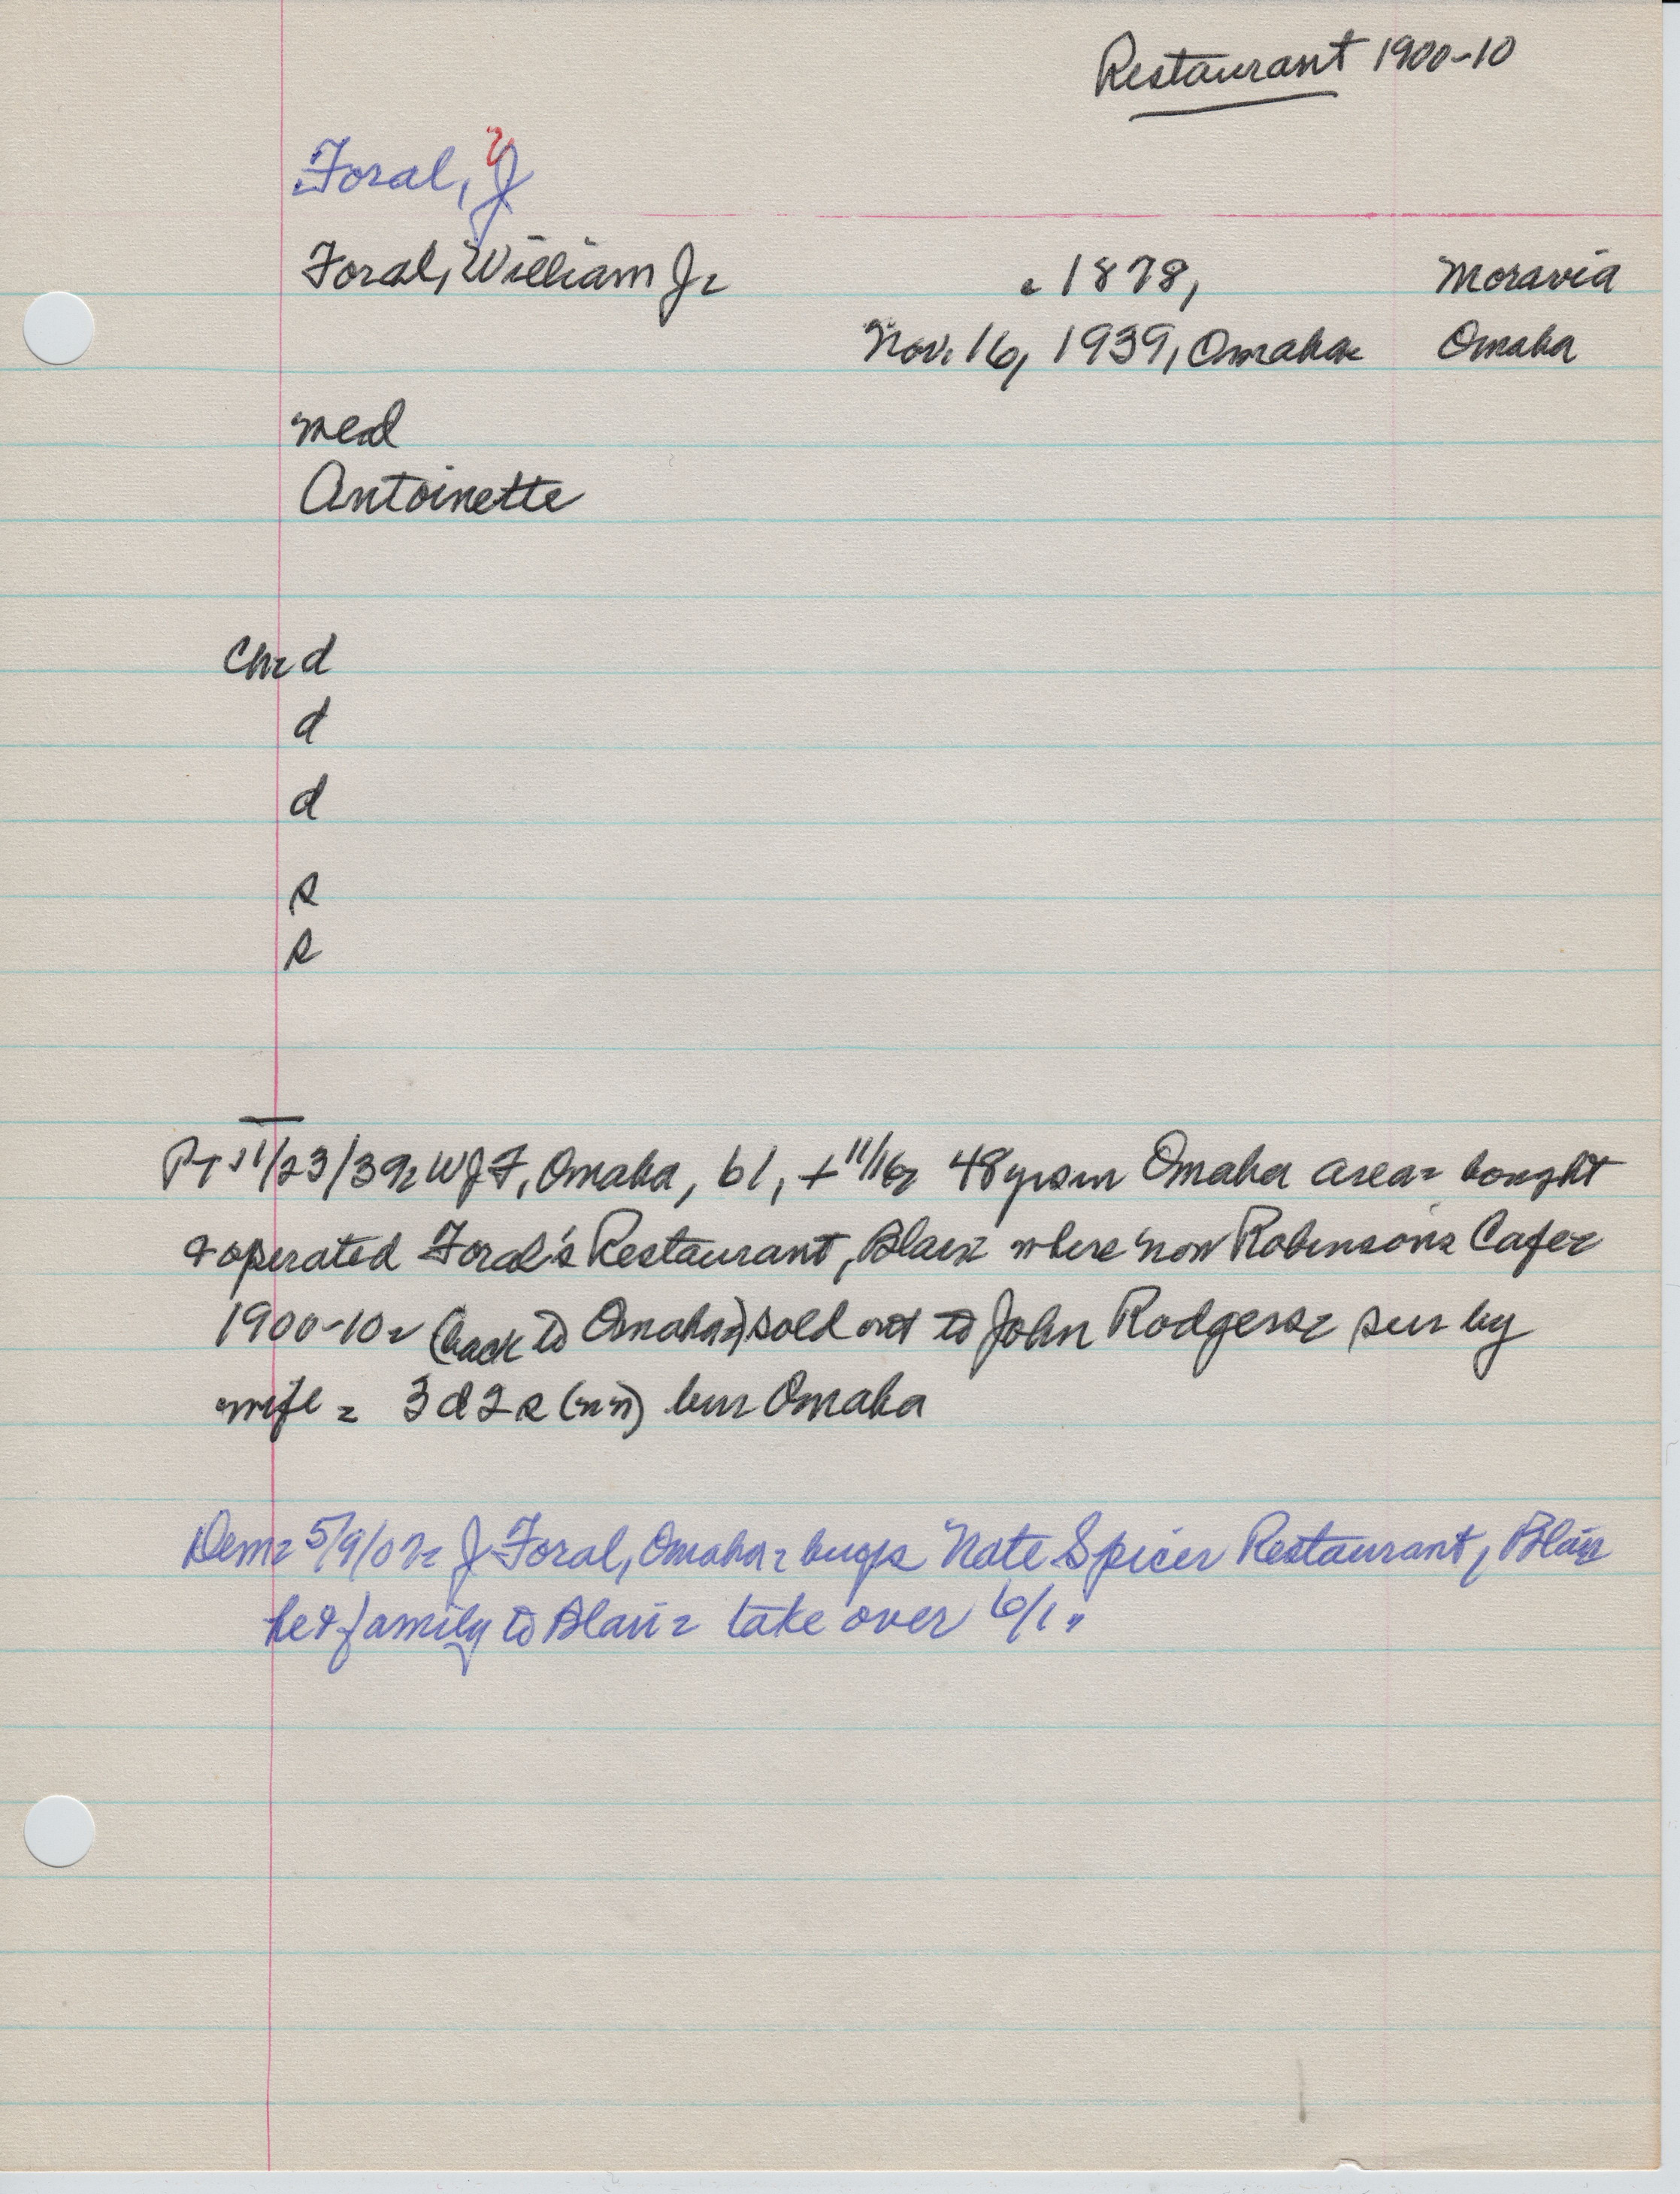 Restaurant 1900-10
Foral, J
?
Foral, William J=
c 1878, Moravia
Nov. 16, 1939, Omaha= Omaha
med
Antoinette
Ch= d
d
d
s
s
PT 11/23/39= WJF, Omaha, 61, + 11/16= 48 yrs in Omaha area= bought
& operated Foral's Restaurant, Blair= where now Robinsons= Cafe=
1900-10= (back to Omaha=) sold out to John Rodgers= sur by
wife = 3 d 2 s (nn) bur Omaha
Dem= 5/9/07= J Foral, Omaha= buys Nate Spicer Restaurant, Blair
he & family to Blair= take over 6/1.